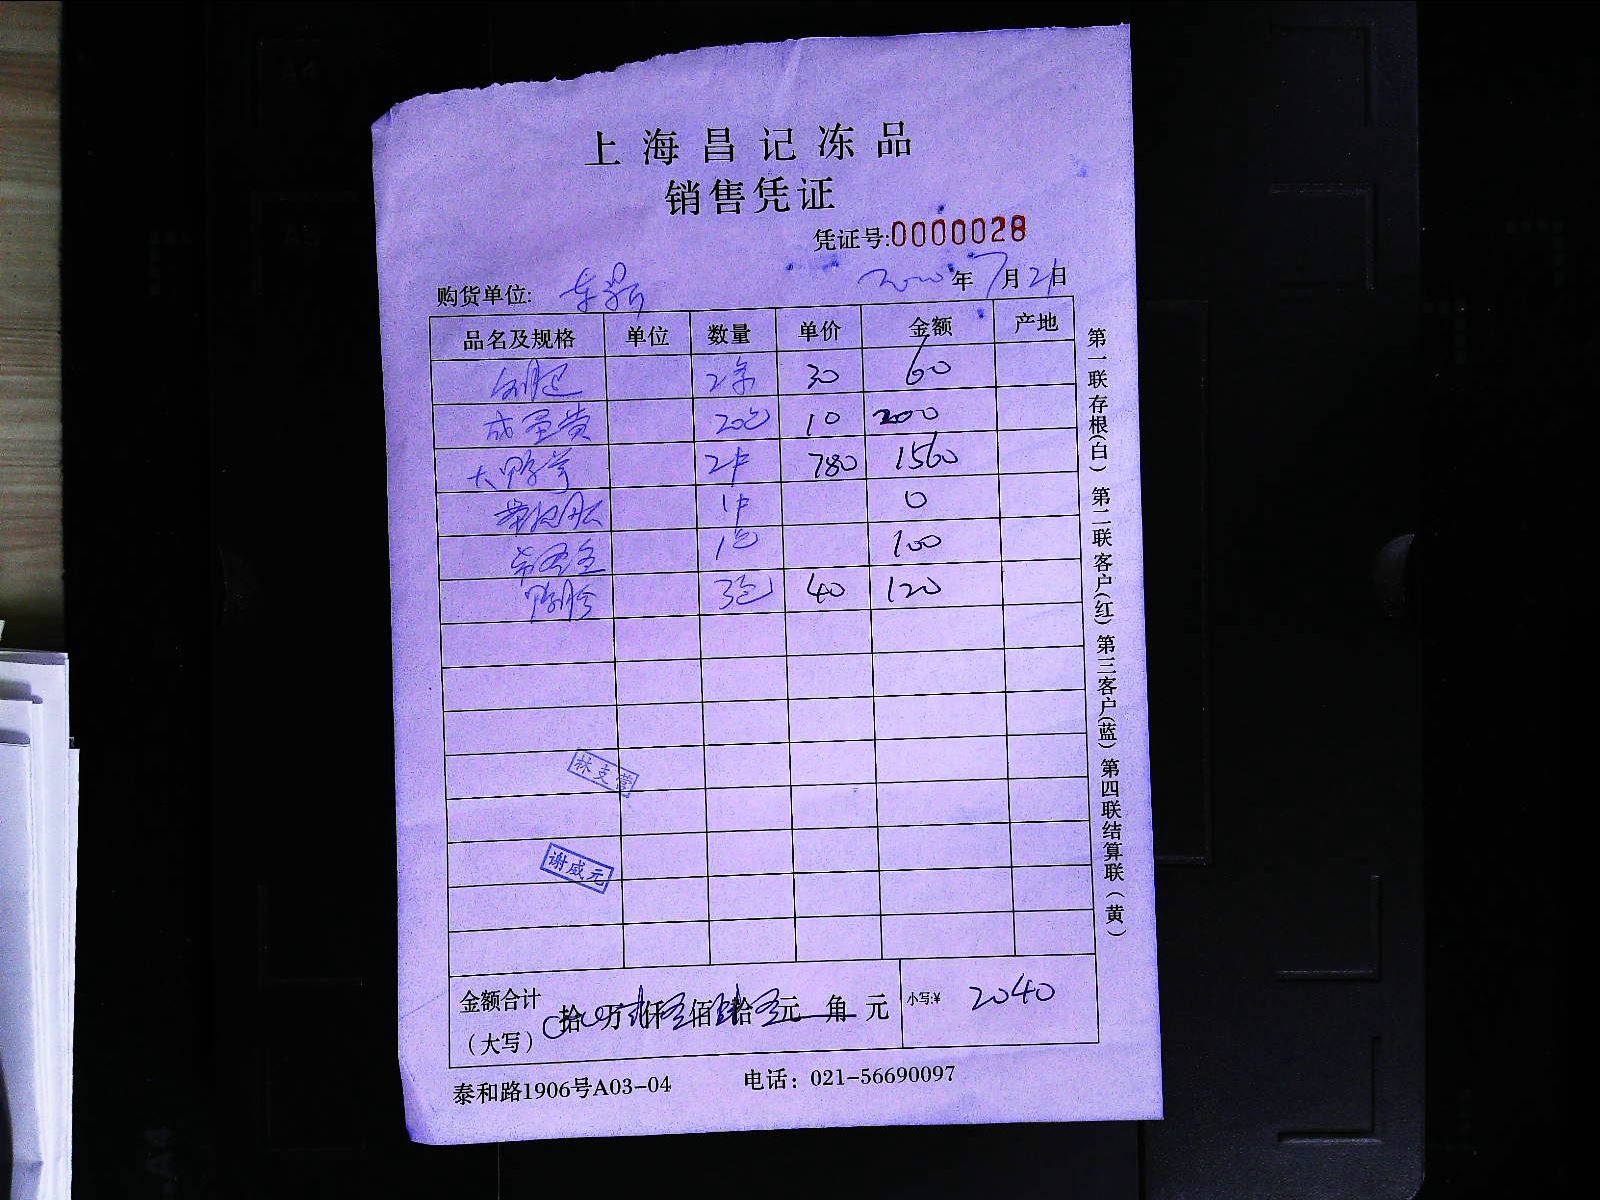 上海昌记冻品
销售凭证
凭证号:0000028
购货单位: 年7月21日
品名及规格 单位 数量 单价 金额 产地
30 60
20包 10 200
大鸭 2件 780 1560
1件 0
1包 100
鸭胗 3包 40 120
林支营
谢威元
金额合计 拾 万 仟 佰 拾 元 角 元 小写:¥ 2040
(大写)
泰和路1906号A03-04 电话: 021-56690097
第一联存根(白) 第二联客户(红) 第三客户(蓝) 第四联结算联(黄)